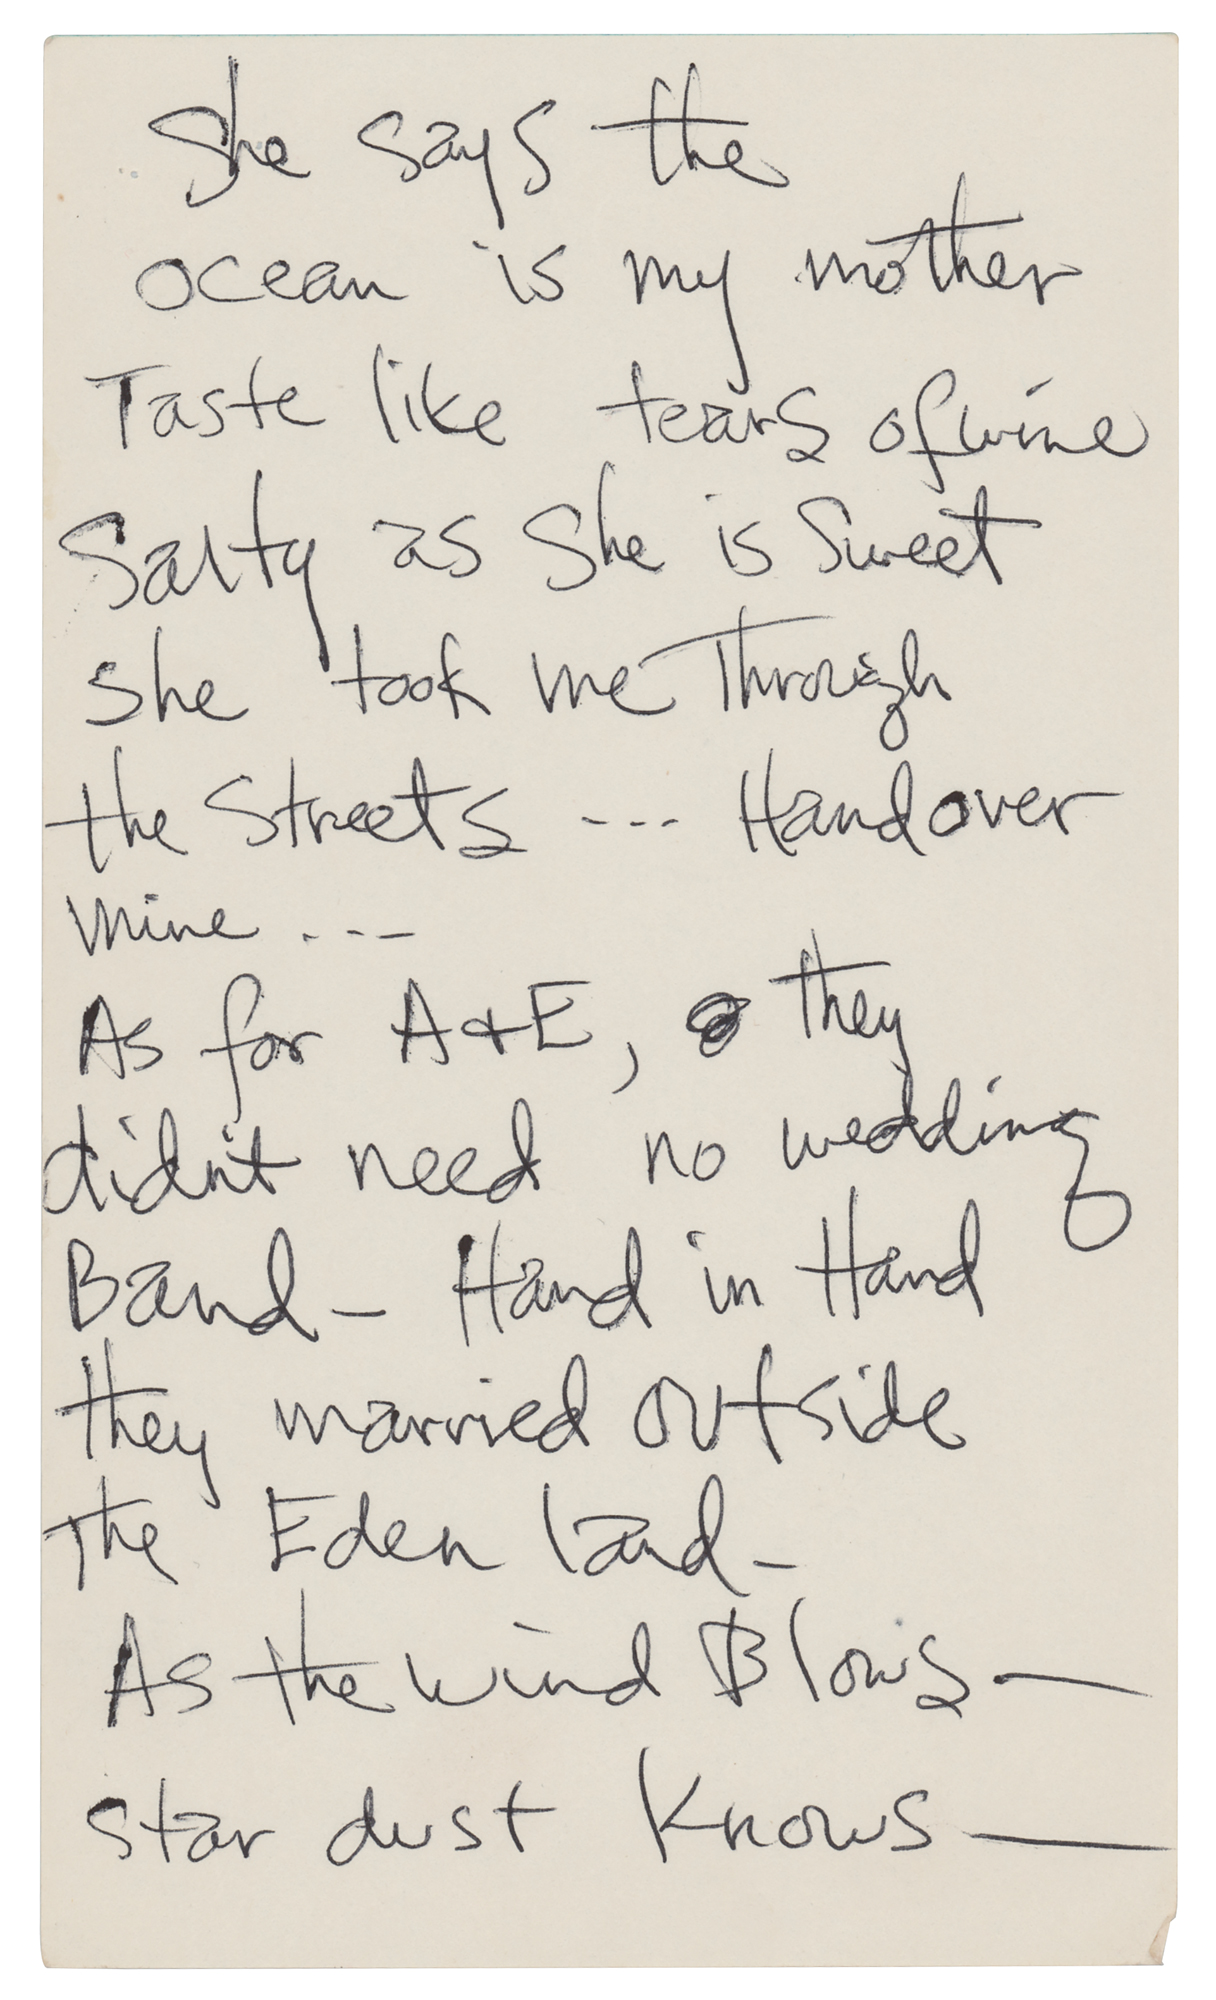 She says the
ocean is my mother
Taste like tears of wine
Salty as She is Sweet
she took me Through
the Streets --- Hand over
mine ---
As for A+E, they
didn't need no wedding
Band - Hand in Hand
they married outside
The Eden land -
As the wind Blows -
star dust Knows -